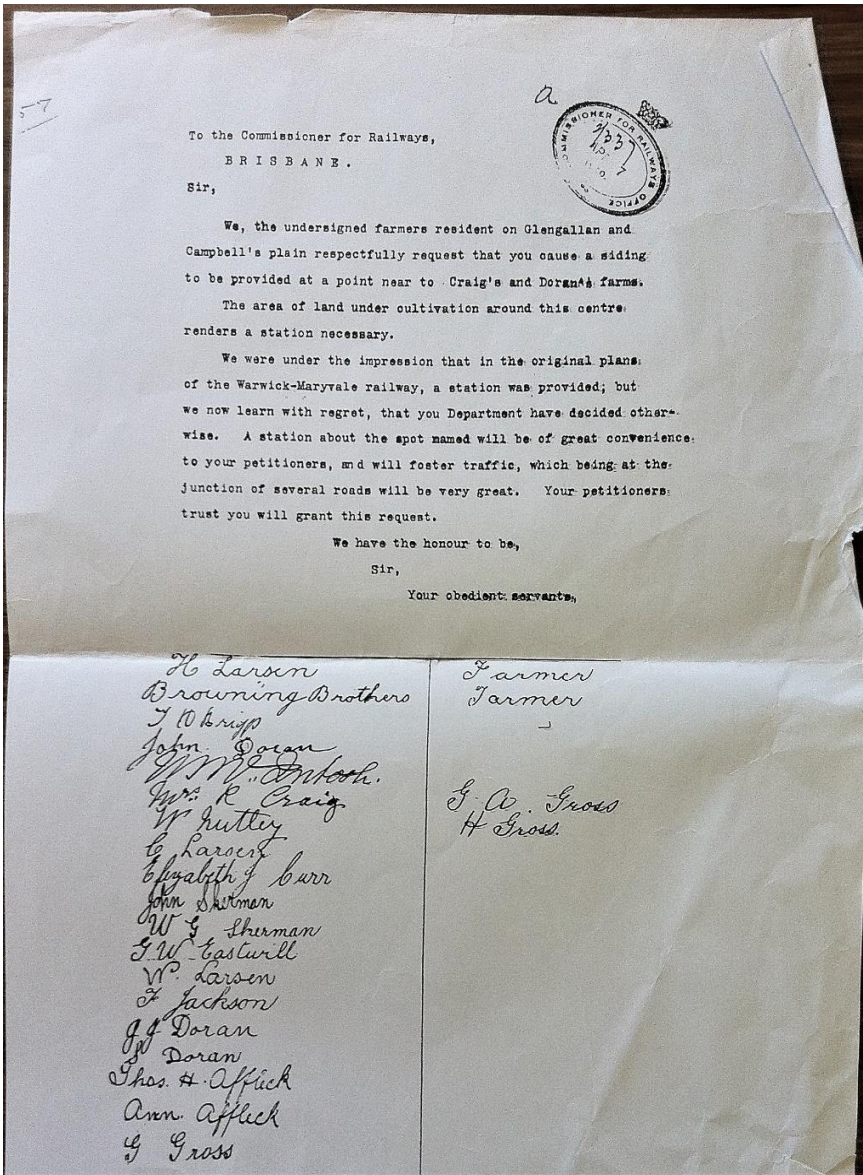 57
a
COMMISSIONER FOR RAILWAYS OFFICE
To the Commissioner for Railways,
BRISBANE.
Sir,
We, the undersigned farmers resident on Glengallan and
Campbell's plain respectfully request that you cause a siding
to be provided at a point near to Craig's and Doran's farms.
The area of land under cultivation around this centre
renders a station necessary.
We were under the impression that in the original plans
of the Warwick-Maryvale railway, a station was provided; but
we now learn with regret, that you Department have decided other-
wise. A station about the spot named will be of great convenience
to your petitioners, and will foster traffic, which being at the
junction of several roads will be very great. Your petitioners
trust you will grant this request.
We have the honour to be,
Sir,
Your obedient servants,
H Larsen
Browning Brothers
John Doran
W McIntosh.
Mrs R Craig
W Nutley
C Larsen
Elizabeth J Curr
John Sherman
W G Sherman
G W Eastwill
W. Larsen
F Jackson
J J Doran
S Doran
Thos. H. Affleck
Ann. Affleck
G Gross
Farmer
Farmer
G. A. Gross
H Gross.